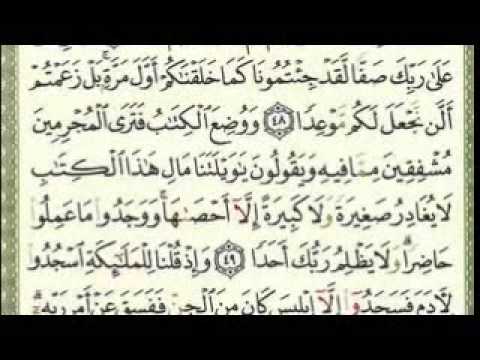 عَلَىٰ رَبِّكَ صَفًّا لَّقَدْ جِئْتُمُونَا كَمَا خَلَقْنَـٰكُمْ أَوَّلَ مَرَّةٍۭ ۚ بَلْ زَعَمْتُمْ
أَلَّن نَّجْعَلَ لَكُم مَّوْعِدًا ٤٨ وَوُضِعَ ٱلْكِتَـٰبُ فَتَرَى ٱلْمُجْرِمِينَ
مُشْفِقِينَ مِمَّا فِيهِ وَيَقُولُونَ يَـٰوَيْلَتَنَا مَالِ هَـٰذَا ٱلْكِتَـٰبِ
لَا يُغَادِرُ صَغِيرَةً وَلَا كَبِيرَةً إِلَّآ أَحْصَىٰهَا ۚ وَوَجَدُوا۟ مَا عَمِلُوا۟
حَاضِرًا ۗ وَلَا يَظْلِمُ رَبُّكَ أَحَدًا ٤٩ وَإِذْ قُلْنَا لِلْمَلَـٰٓئِكَةِ ٱسْجُدُوا۟
لِـَٔادَمَ فَسَجَدُوٓا۟ إِلَّآ إِبْلِيسَ كَانَ مِنَ ٱلْجِنِّ فَفَسَقَ عَنْ أَمْرِ رَبِّهِۦٓ ۗ